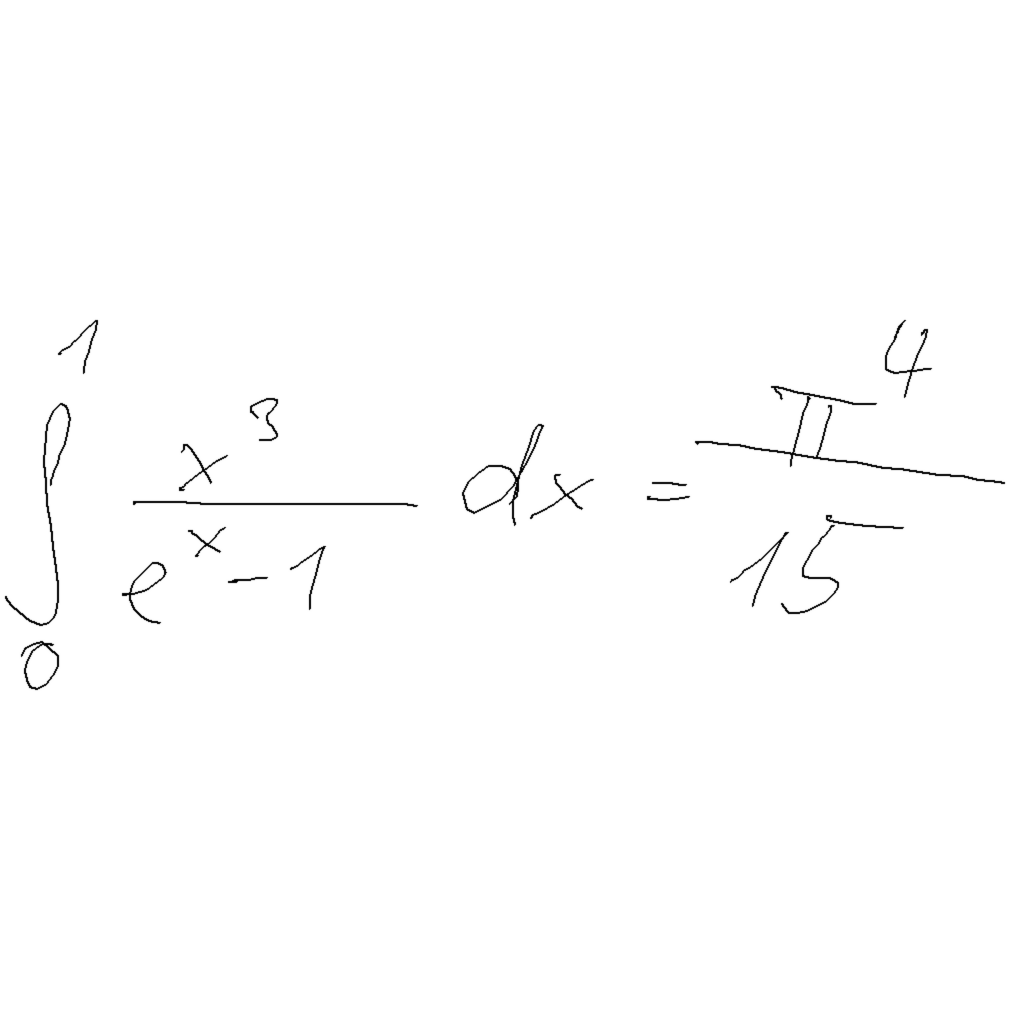 ∫₀¹ x³/(eˣ-1) dx = π⁴/15